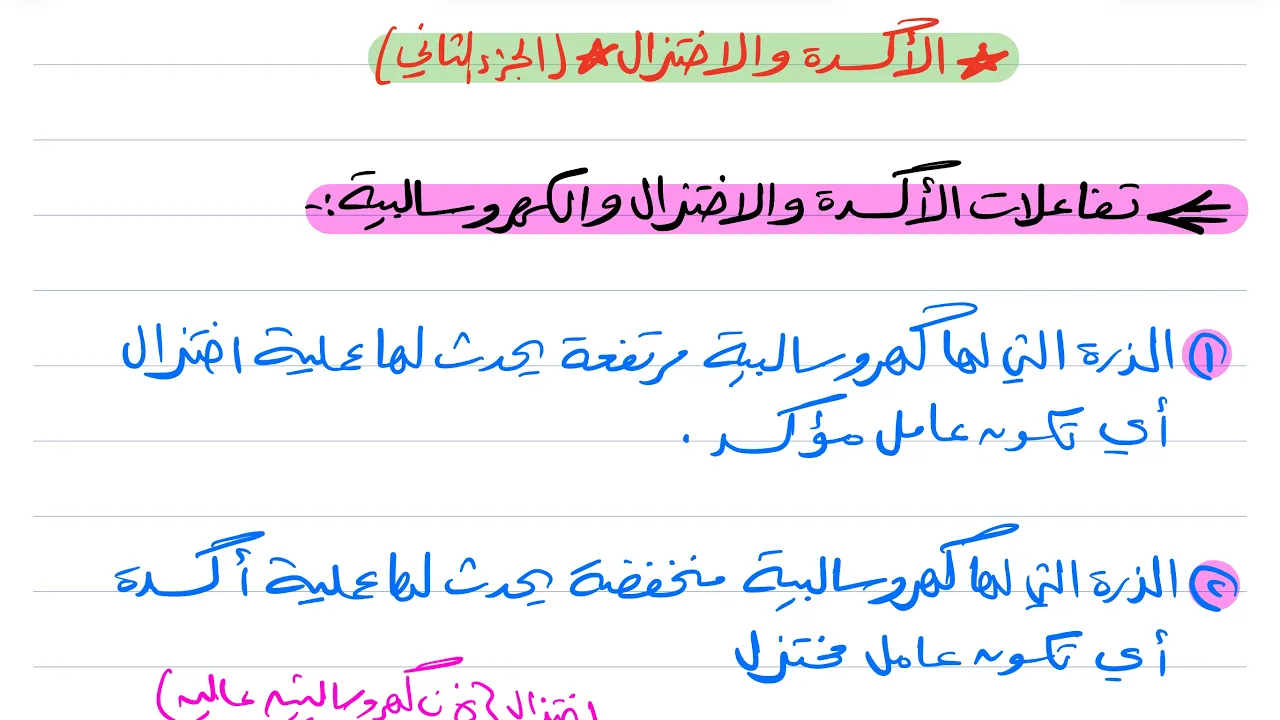 ★ الأكسدة والاختزال ★ (الجزء الثاني)
تفاعلات الأكسدة والاختزال والكهروسالبية :-
① الذرة التي لها كهروسالبية مرتفعة يحدث لها عملية اختزال
أي تكون عامل مؤكسد .
② الذرة التي لها كهروسالبية منخفضة يحدث لها عملية أكسدة
أي تكون عامل مختزل
اختزال كهروسالبيته عاليه)